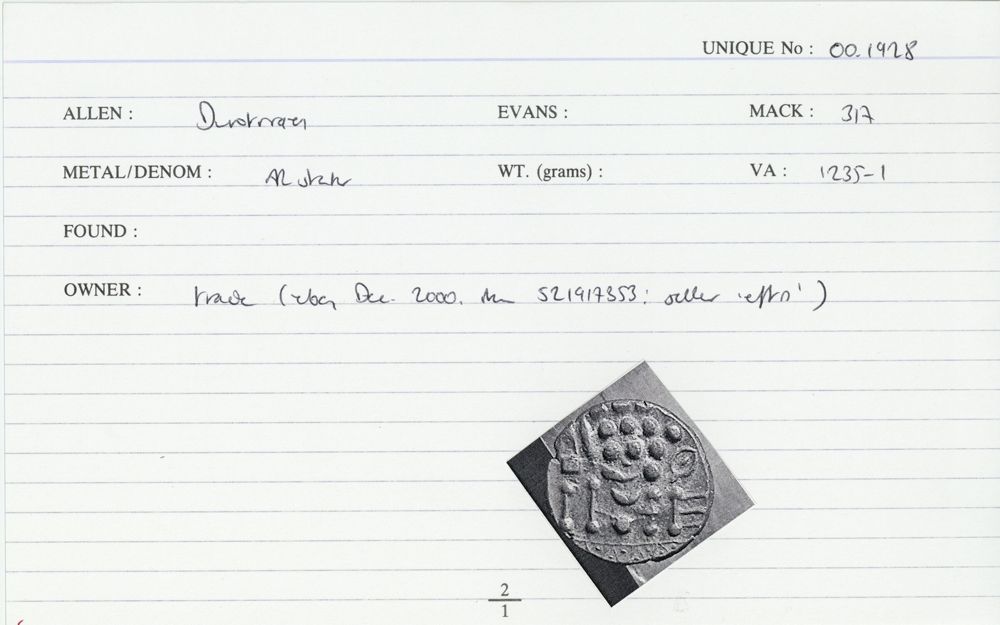 UNIQUE No : 00.1928
ALLEN : Durotrigan EVANS : MACK : 317
METAL/DENOM : AR stater WT. (grams) : VA : 1235-1
FOUND :
OWNER : trade (ebay Dec. 2000. item 521917353: seller
2
1